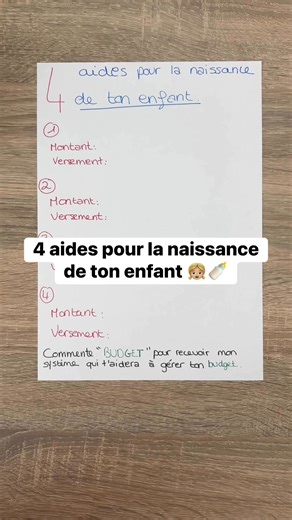 4 aides pour la naissance
de ton enfant
1
Montant:
Versement:
2
Montant:
Versement:
4 aides pour la naissance
de ton enfant 👧🏼🍼
4
Montant:
Versement:
Commente "BUDGET" pour recevoir mon
système qui t'aidera à gérer ton budget.